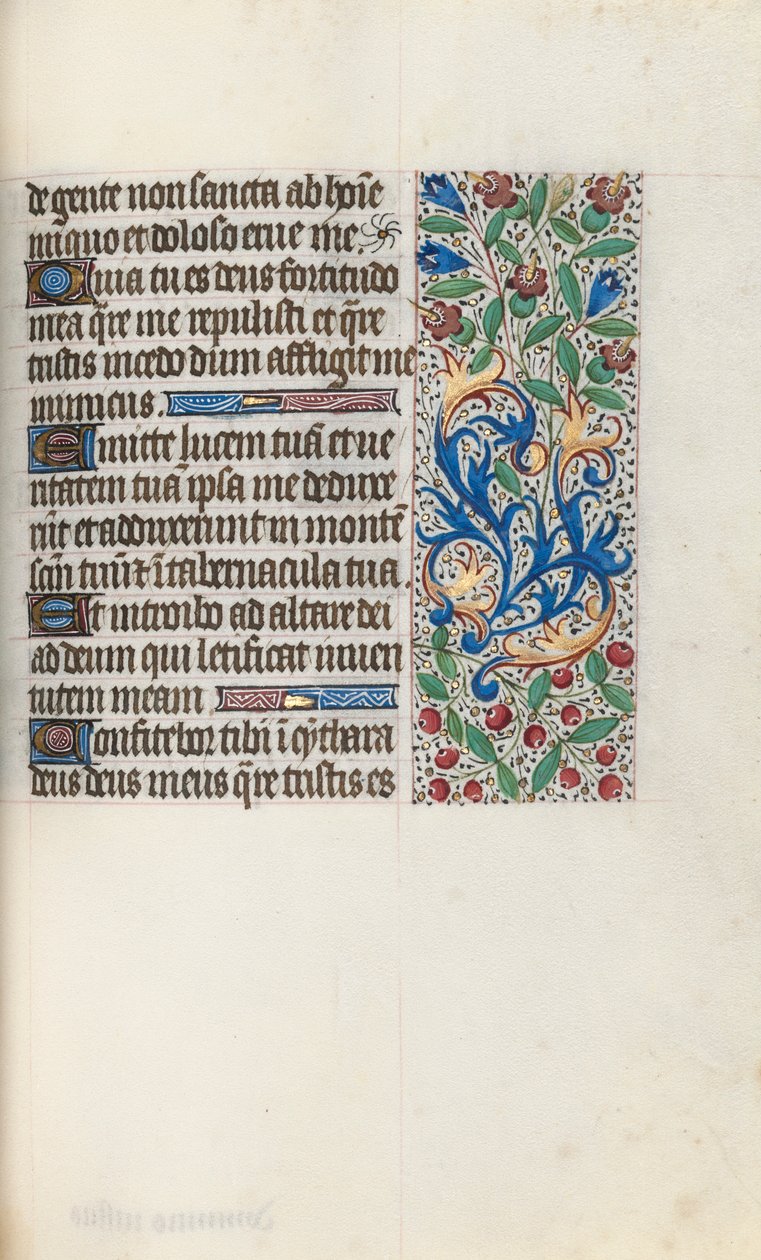 de gente non sancta ab hoı̄e
iniquo et doloso erue me.
Quia tu es deus fortitudo
mea q̄re me repulisti et q̄re
tristis incedo dum affligit me
inimicus.
Emitte lucem tuā et ue
ritatem tuā ipsa me deduxe
rūt et adduxerunt in montē
scm̄ tuū & ı̄ tabernacula tua.
Et introibo ad altare dei
ad deum qui letificat iuuen
tutem meam
Confitebor tibi ı̄ cythara
deus deus meus q̄re tristis es